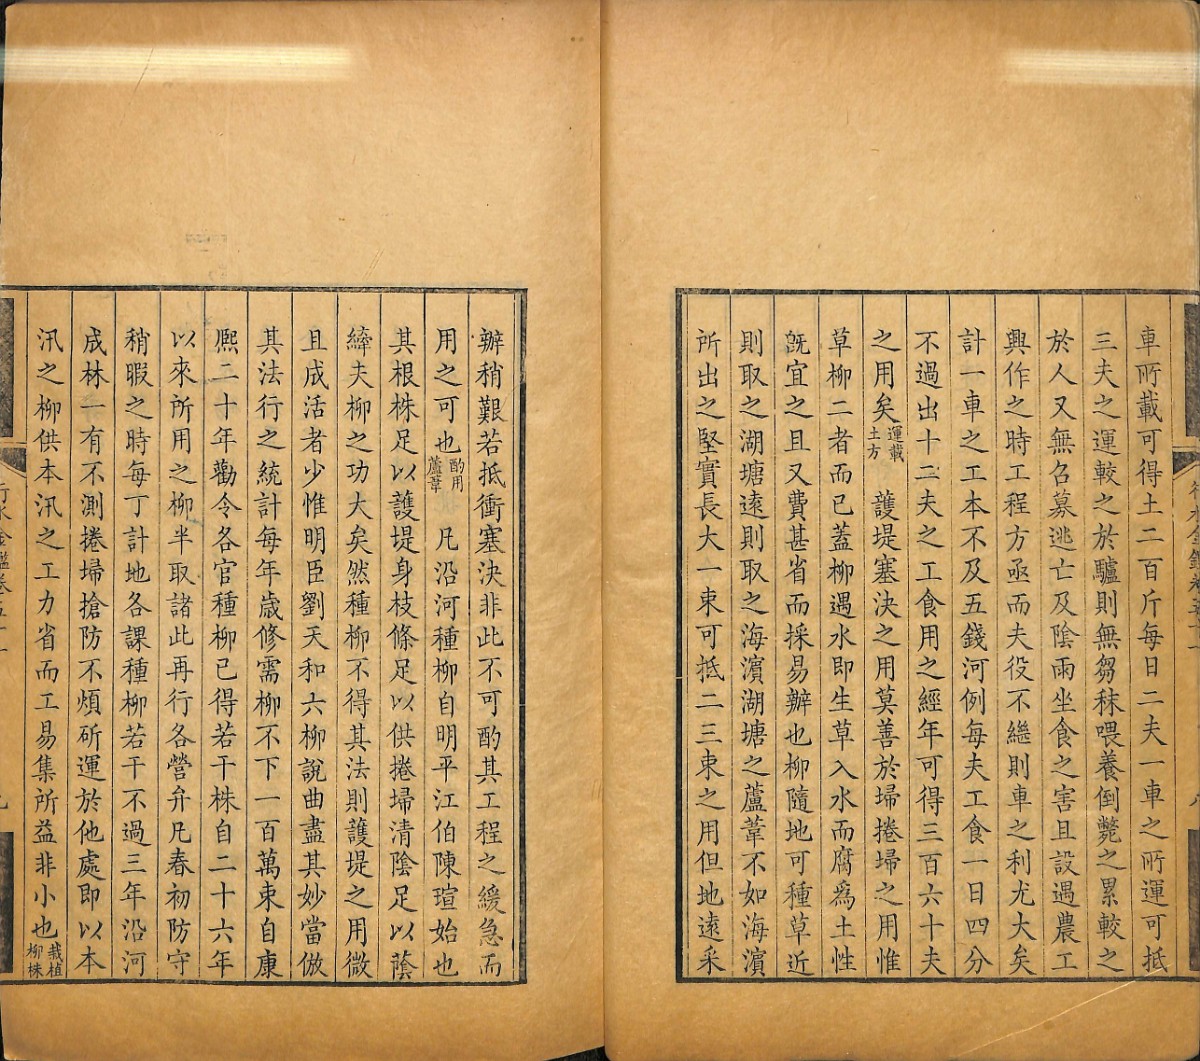 車所載可得土二百斤每日二夫一車之所運可抵
三夫之運較之於驢則無芻秣喂養倒斃之累較之
於人又無召募逃亡及陰雨坐食之害且設遇農工
興作之時工程方亟而夫役不繼則車之利尤大矣
計一車之工本不及五錢河例每夫工食一日四分
不過出十二夫之工食用之經年可得三百六十夫
之用矣運載土方　護堤塞決之用莫善於埽捲埽之用惟
草柳二者而已蓋柳遇水即生草入水而腐爲土性
旣宜之且又費甚省而採易辦也柳隨地可種草近
則取之湖塘遠則取之海濱湖塘之蘆葦不如海濱
所出之堅實長大一束可抵二三束之用但地遠采
辦稍艱若抵衝塞決非此不可酌其工程之緩急而
用之可也酌用蘆葦　凡沿河種柳自明平江伯陳瑄始也
其根株足以護堤身枝條足以供捲埽清陰足以蔭
縴夫柳之功大矣然種柳不得其法則護堤之用微
且成活者少惟明臣劉天和六柳說曲盡其妙當倣
其法行之統計每年歲修需柳不下一百萬束自康
熙二十年勸令各官種柳已得若干株自二十六年
以來所用之柳半取諸此再行各營弁凡春初防守
稍暇之時每丁計地各課種柳若干不過三年沿河
成林一有不測捲埽搶防不煩斫運於他處即以本
汛之柳供本汛之工力省而工易集所益非小也栽植柳株